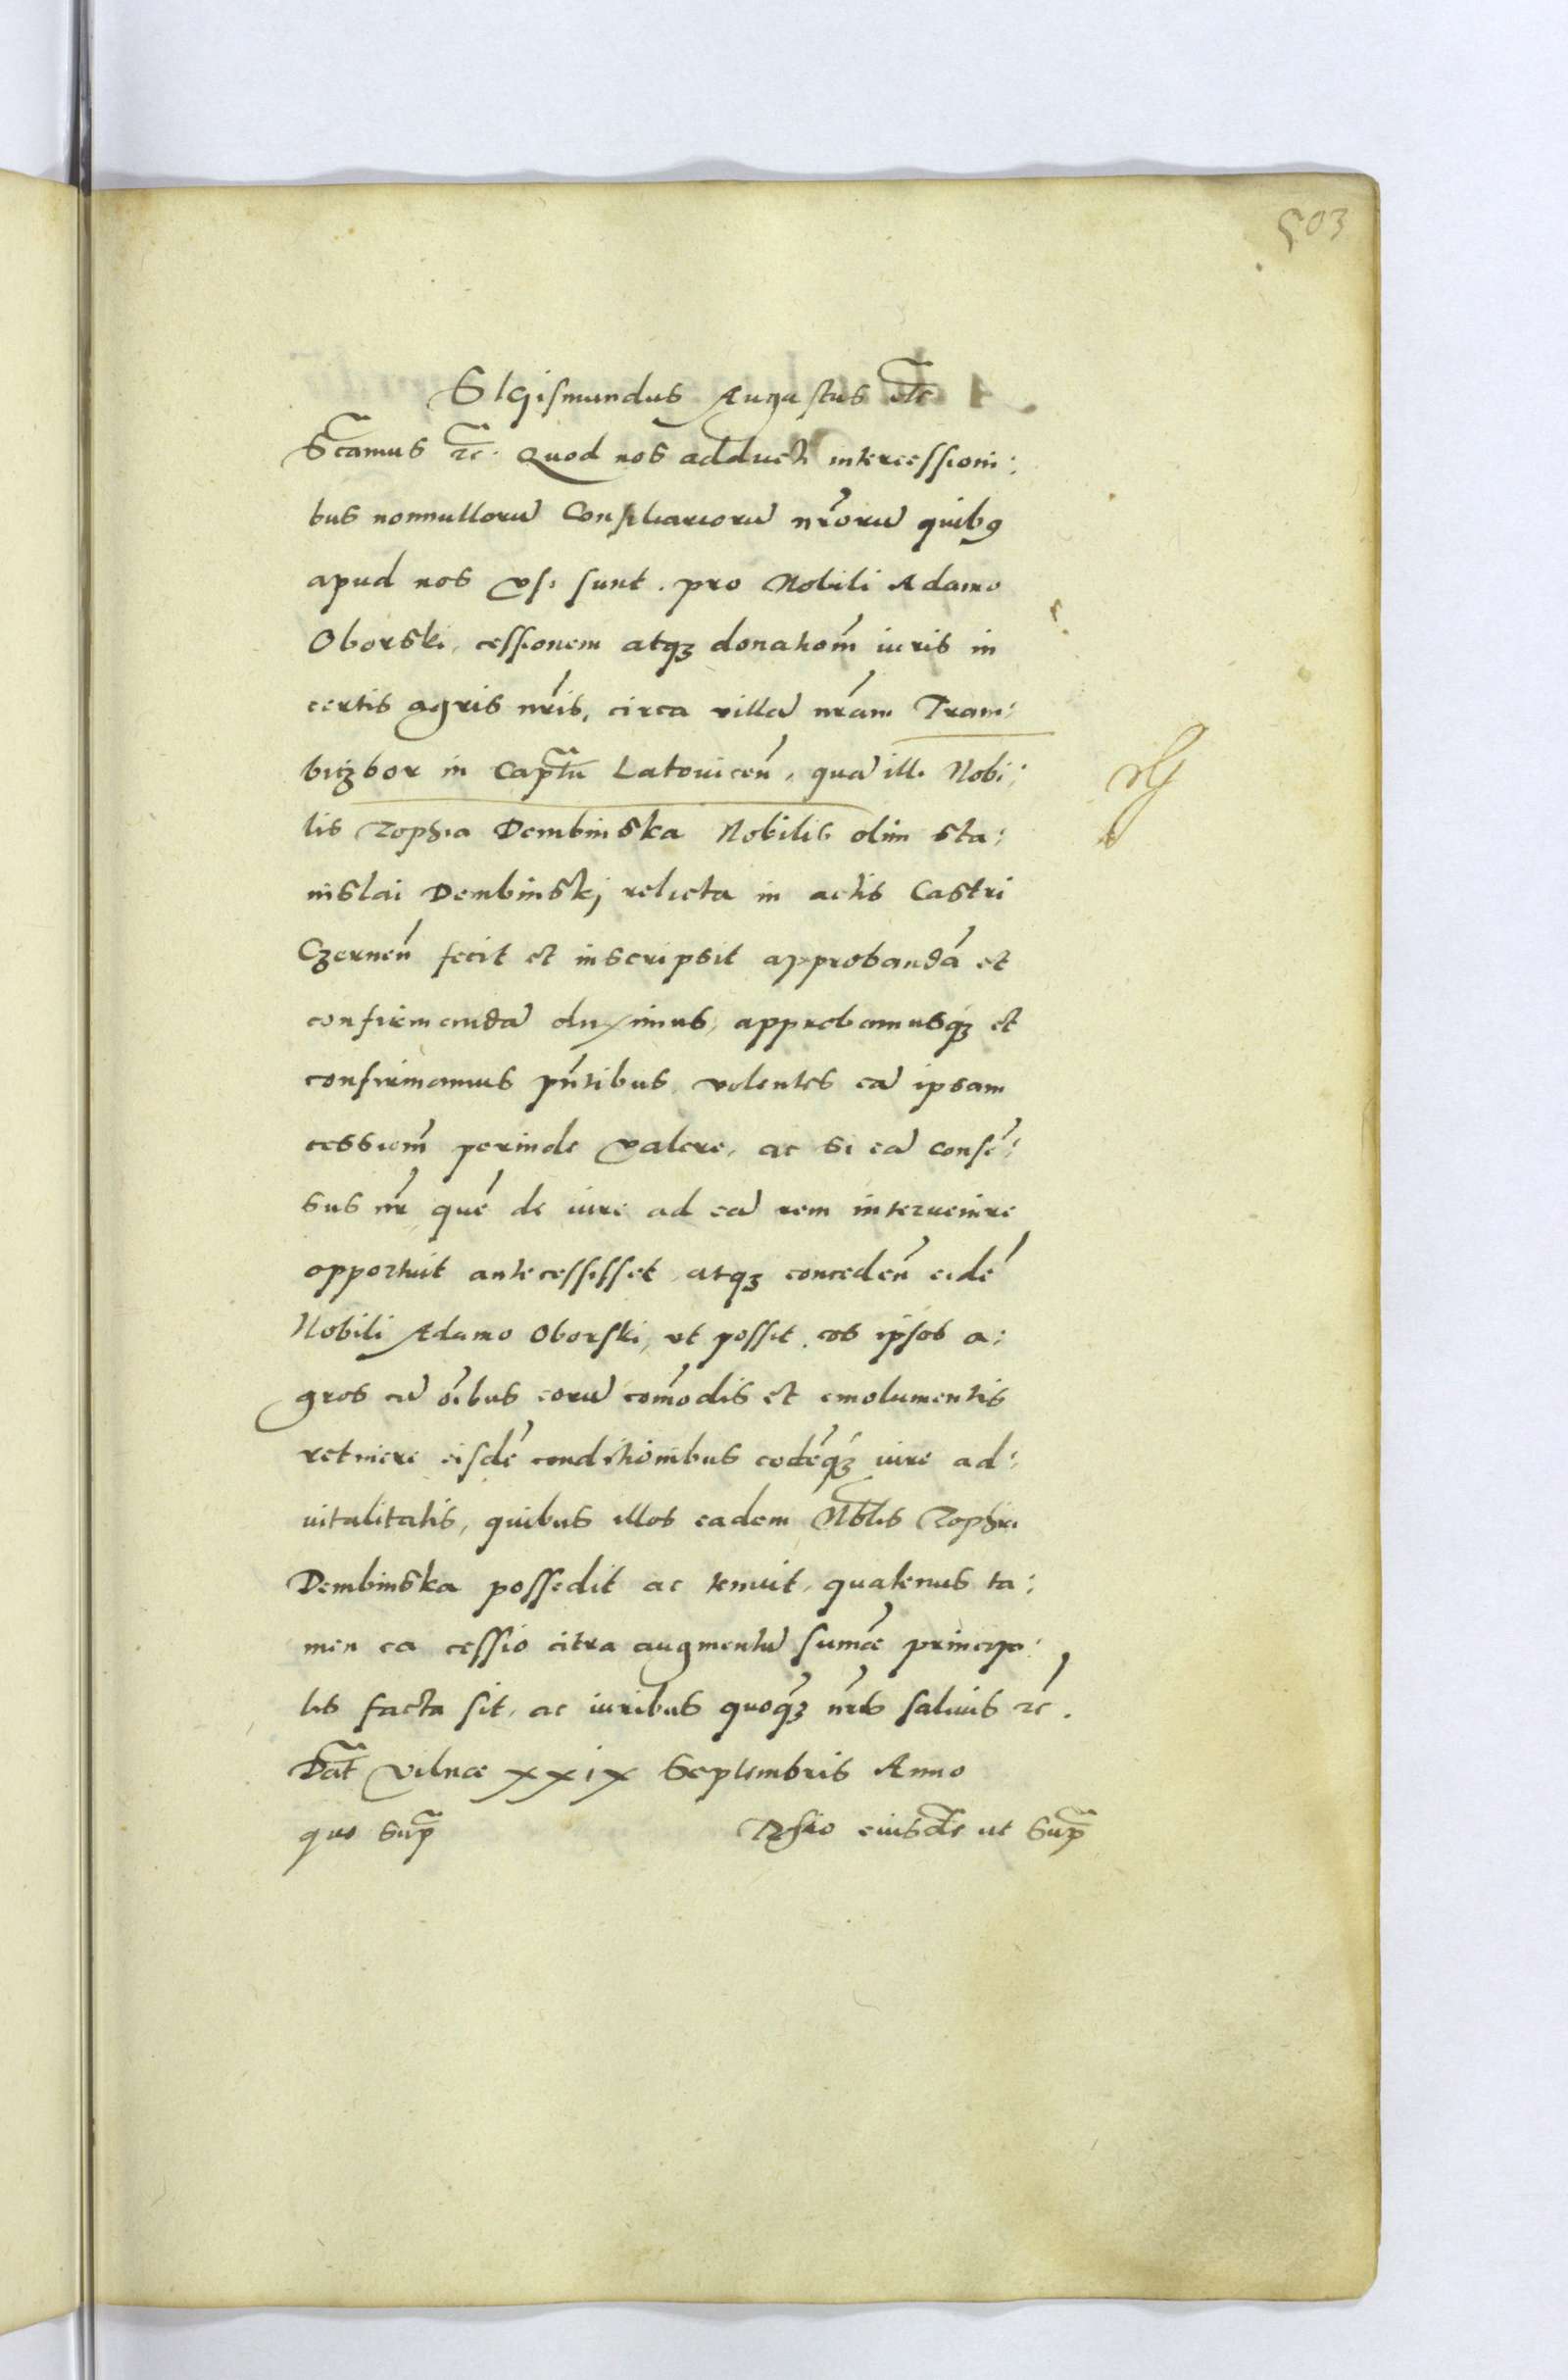 503
SIGismundus Augustus etc
Scamus etc. Quod nos adducti intercessioni:
bus nonnulloru Consiliarioru nroru quib9
apud nos vsi sunt. pro Nobili Adamo
Oborski, cessionem atq3 donatiom iuris in
certis agris nris, circa villa nram Tram:
bitzbor in Captu Latouicen, qua illi Nobi:
lis Zophia Dembinska Nobilis olim Sta:
nislai Dembinskj relicta in actis Castri
Czernen fecit et inscripsit approbanda et
confirmanda duximus, approbamusq3 et
confirmamus pntibus volentes ea ipsam
cessiom perinde valere, ac si ea conse:
sus nr que de iure ad ea rem interuenire
opportuit antecessisset, atq3 conceden eide
Nobili Adamo Oborski, vt possit eos ipsos a:
gros cu oibus eoru comodis et emolumentis
retinere eisde conditionibus eodeq3 iure ad:
uitalitatis, quibus illos eadem Nblis Zophia
Dembinska possedit ac tenuit, quatenus ta:
men ea cessio citra augmentu sumae principa:
lis facta sit, ac iuribus quoq3 nris saluis etc.
Dat Vilnae xxix Septembris Anno
quo sup
Rlatio eiusde ut sup